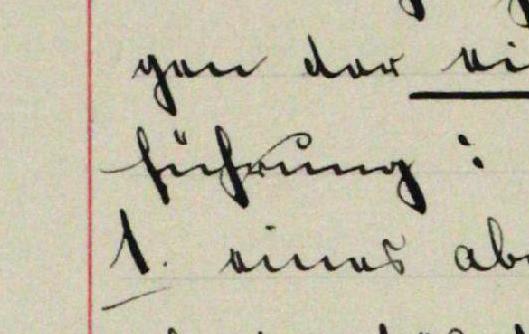 gen der ei
führung :
1. eines ab